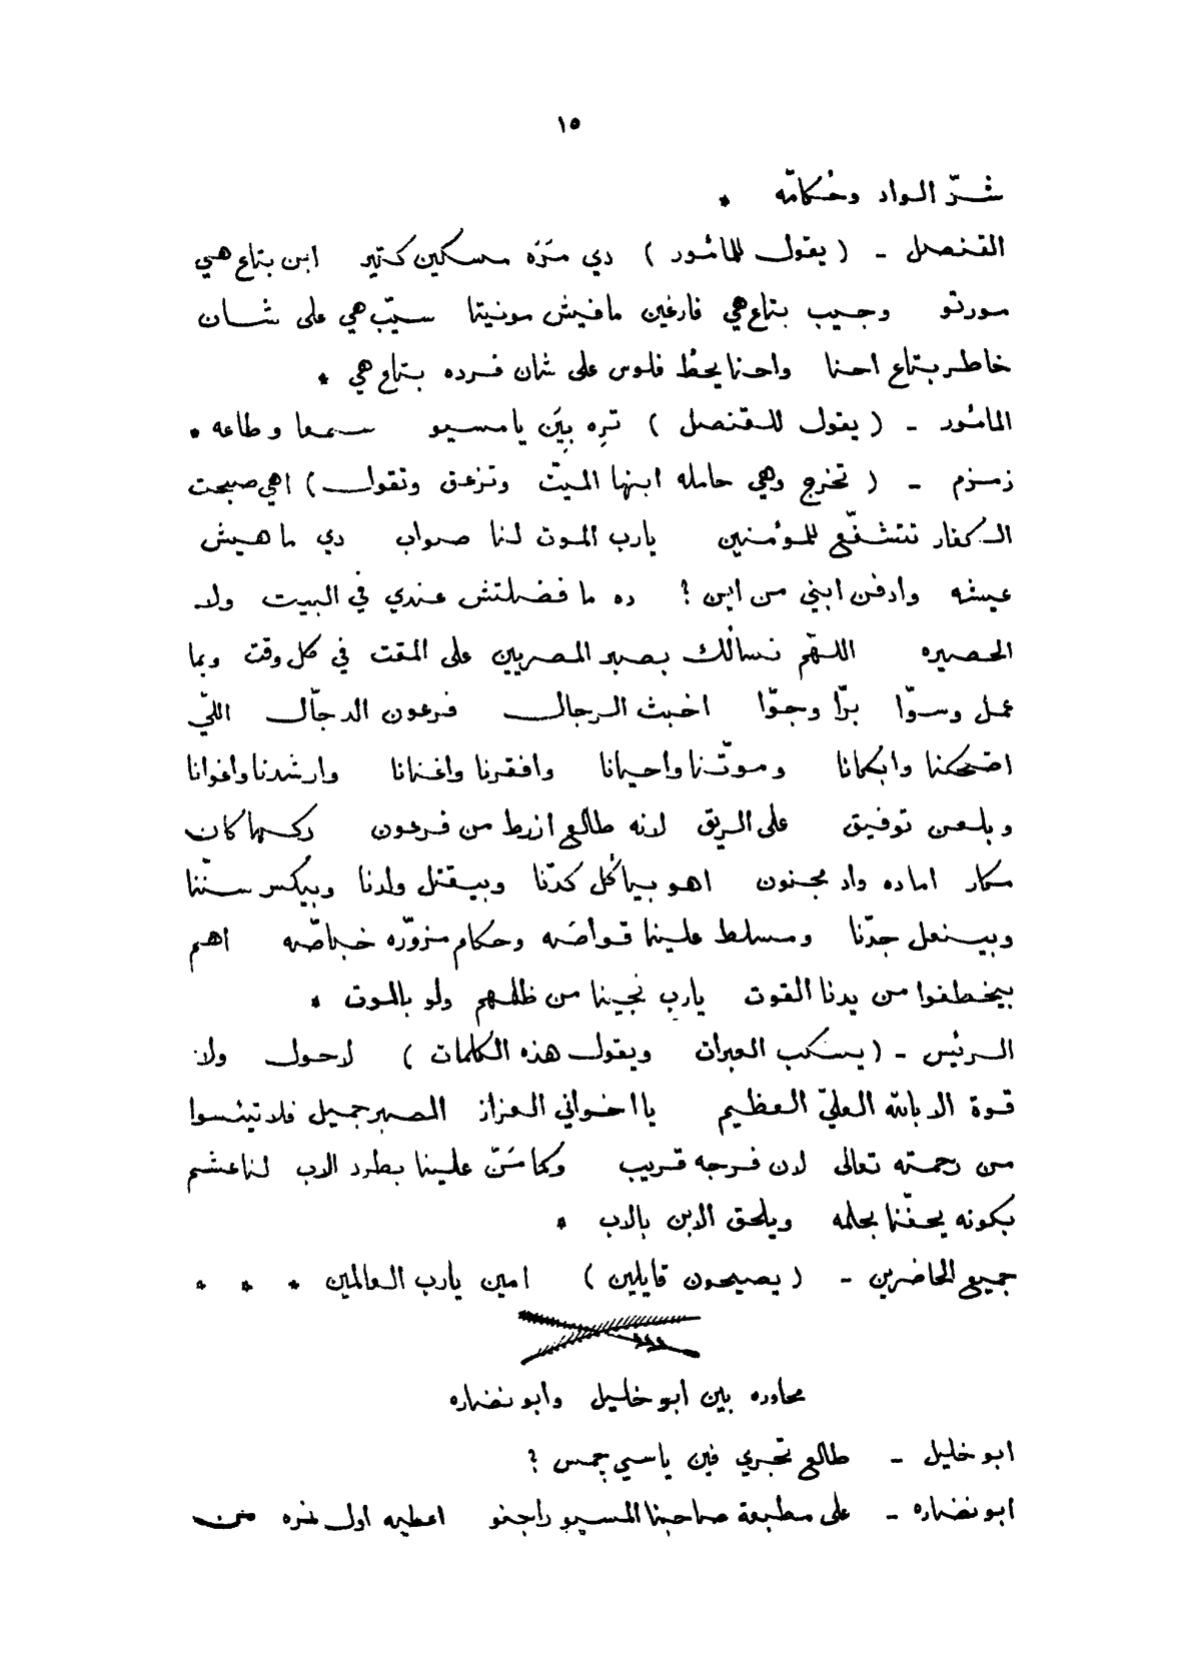 ١٥
شرّ الواد وحُكامّه *
القنصل - ( يقول للمأمور ) دي مَرَه مسكين كتير ابن بتاع هي
مورتو وجيب بتاع هي فارغين مافيش مونيتا سيّب هي على شان
خاطر بتاع احنا واحنا يحُط فلوس على شان فرده بتاع هي *
المأمور - ( يقول للقنصل ) تَرِه بِيَن يا مسيو سمعا وطاعه *
زمزم - ( تخرج وهي حامله ابنها الميّت وتزعق وتقول ) اهي صبحت
الكفار تتشفّع للمؤمنين يارب الموت لنا صواب دي ما هيش
عيشه وادفن ابني من اين ؟ ده ما فضلتش عندي في البيت ولا
الحصيره اللهّم نسألك بصبر المصريين على المقت في كل وقت وبما
عمل وسوّا برّا وجوّا اخبث الرجال فرعون الدجّال اللي
اضحكنا وابكانا وموّتنا واحيانا وافقرنا واغنانا وارشدنا واغوانا
ويلعن توفيق على الريق لانه طالع ازرط من فرعون دكهما كان
مكار اما ده واد مجنون اهو بيأكل كدّنا وبيقتل ولدنا وبيكسر سنّنا
وبينعل جدّنا ومسلط علينا قواصَه وحكام مزوّره خباصّه اهم
بيخطفوا من يدنا القوت يارب نجينا من ظلمهم ولو بالموت *
الرئيس - ( يسكب العبرات ويقول هذه الكلمات ) لاحول ولا
قوة الا بالله العليّ العظيم يا اخواني العزاز الصبر جميل فلا تيئسوا
من رحمته تعالى لان فرجه قريب وكما مَنّ علينا بطرد الاب لنا عشم
بكونه يحفّنا بحلمه ويلحق الابن بالاب *
جميع الحاضرين - ( يصيحون قايلين ) امين يارب العالمين * * *
محاوره بين ابو خليل وابو نضاره
ابو خليل - طالع تجري فين يا سي جمس ؟
ابو نضاره - على مطبعة صاحبنا المسيو راجنو اعطيه اول نمره من